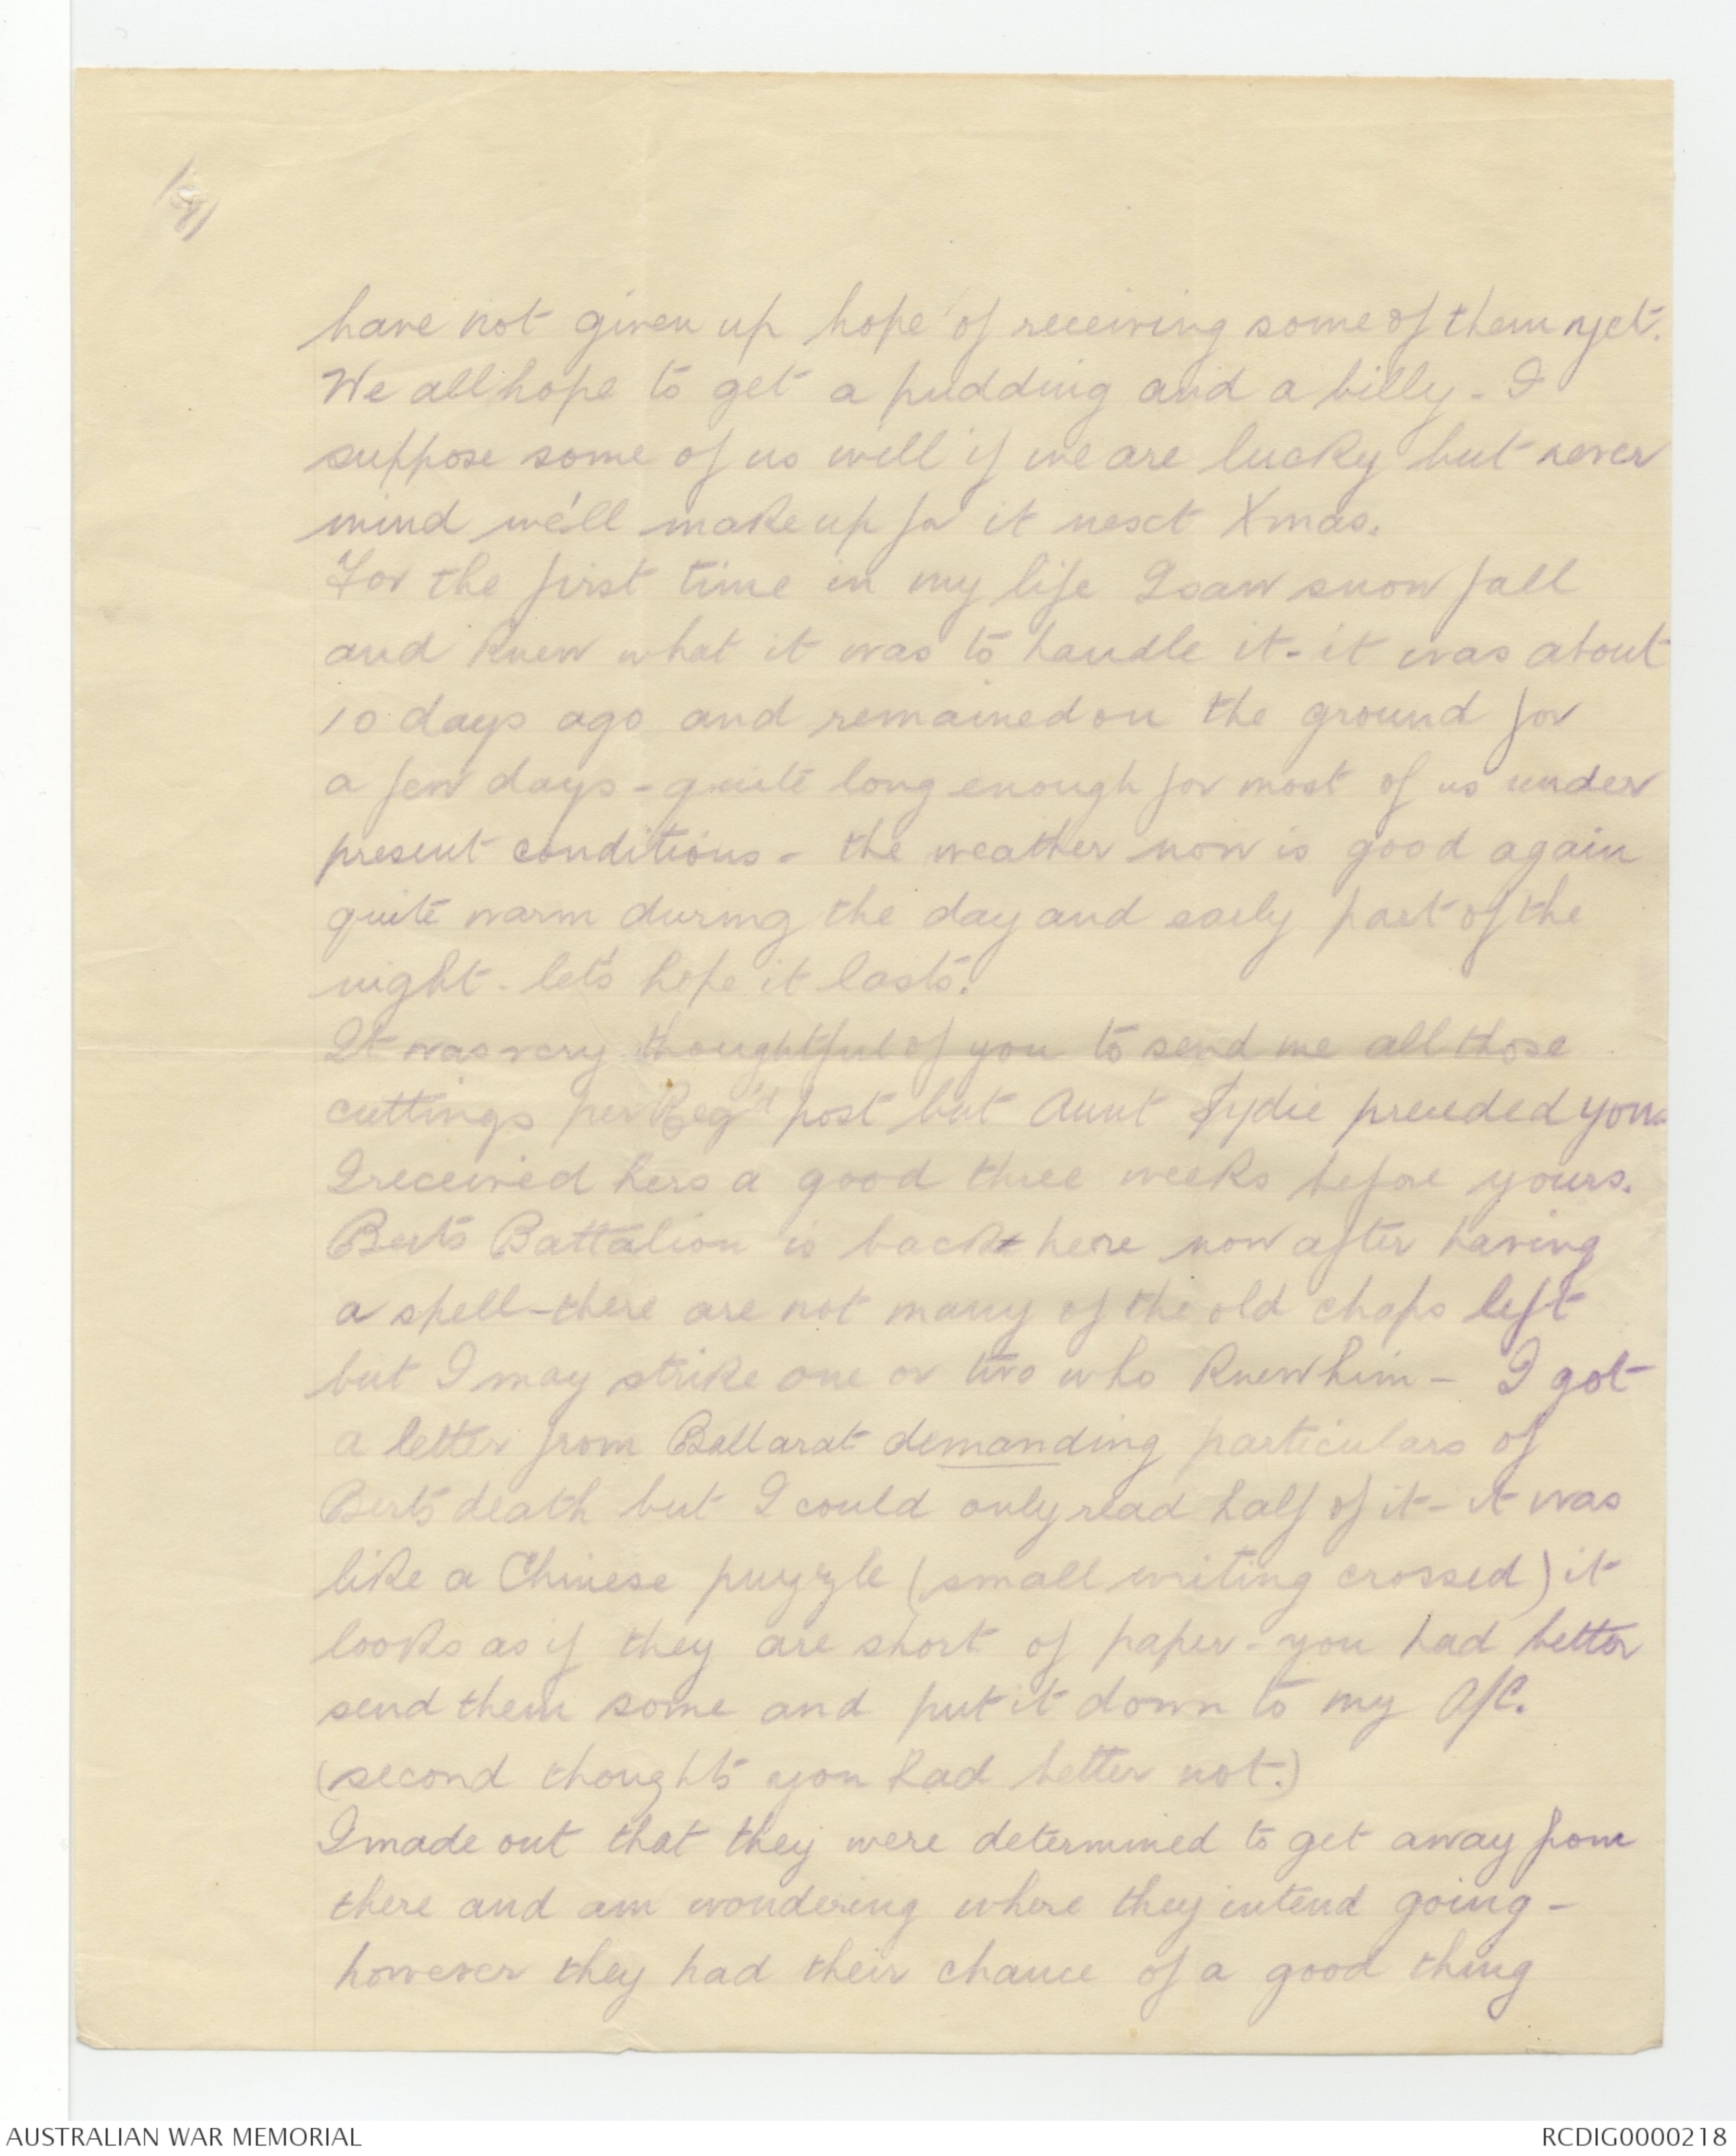 have not given up hope of receiving some of them yet.
We all hope to get a pudding and a billy - I
suppose some of us will if we are lucky but never
mind we'll make up for it next Xmas.
For the first time in my life I saw snow fall
and knew what it was to handle it - it was about
10 days ago and remained on the ground for
a few days - quite long enough for most of us under
present conditions - the weather now is good again
quite warm during the day and early part of the
night - let's hope it lasts.
It was very thoughtful of you to send me all those
cuttings per Reg'd post but Aunt Lydie preceded you
I received hers a good three weeks before yours.
Bert's Battalion is back here now after having
a spell - there are not many of the old chaps left
but I may strike one or two who knew him - I got
a letter from Ballarat demanding particulars of
Bert's death but I could only read half of it - it was
like a Chinese puzzle (small writing crossed) it
looks as if they are short of paper - you had better
send them some and put it down to my A/C.
(second thoughts you had better not.)
I made out that they were determined to get away from
there and am wondering where they intend going -
however they had their chance of a good thing
AUSTRALIAN WAR MEMORIAL
RCDIG0000218